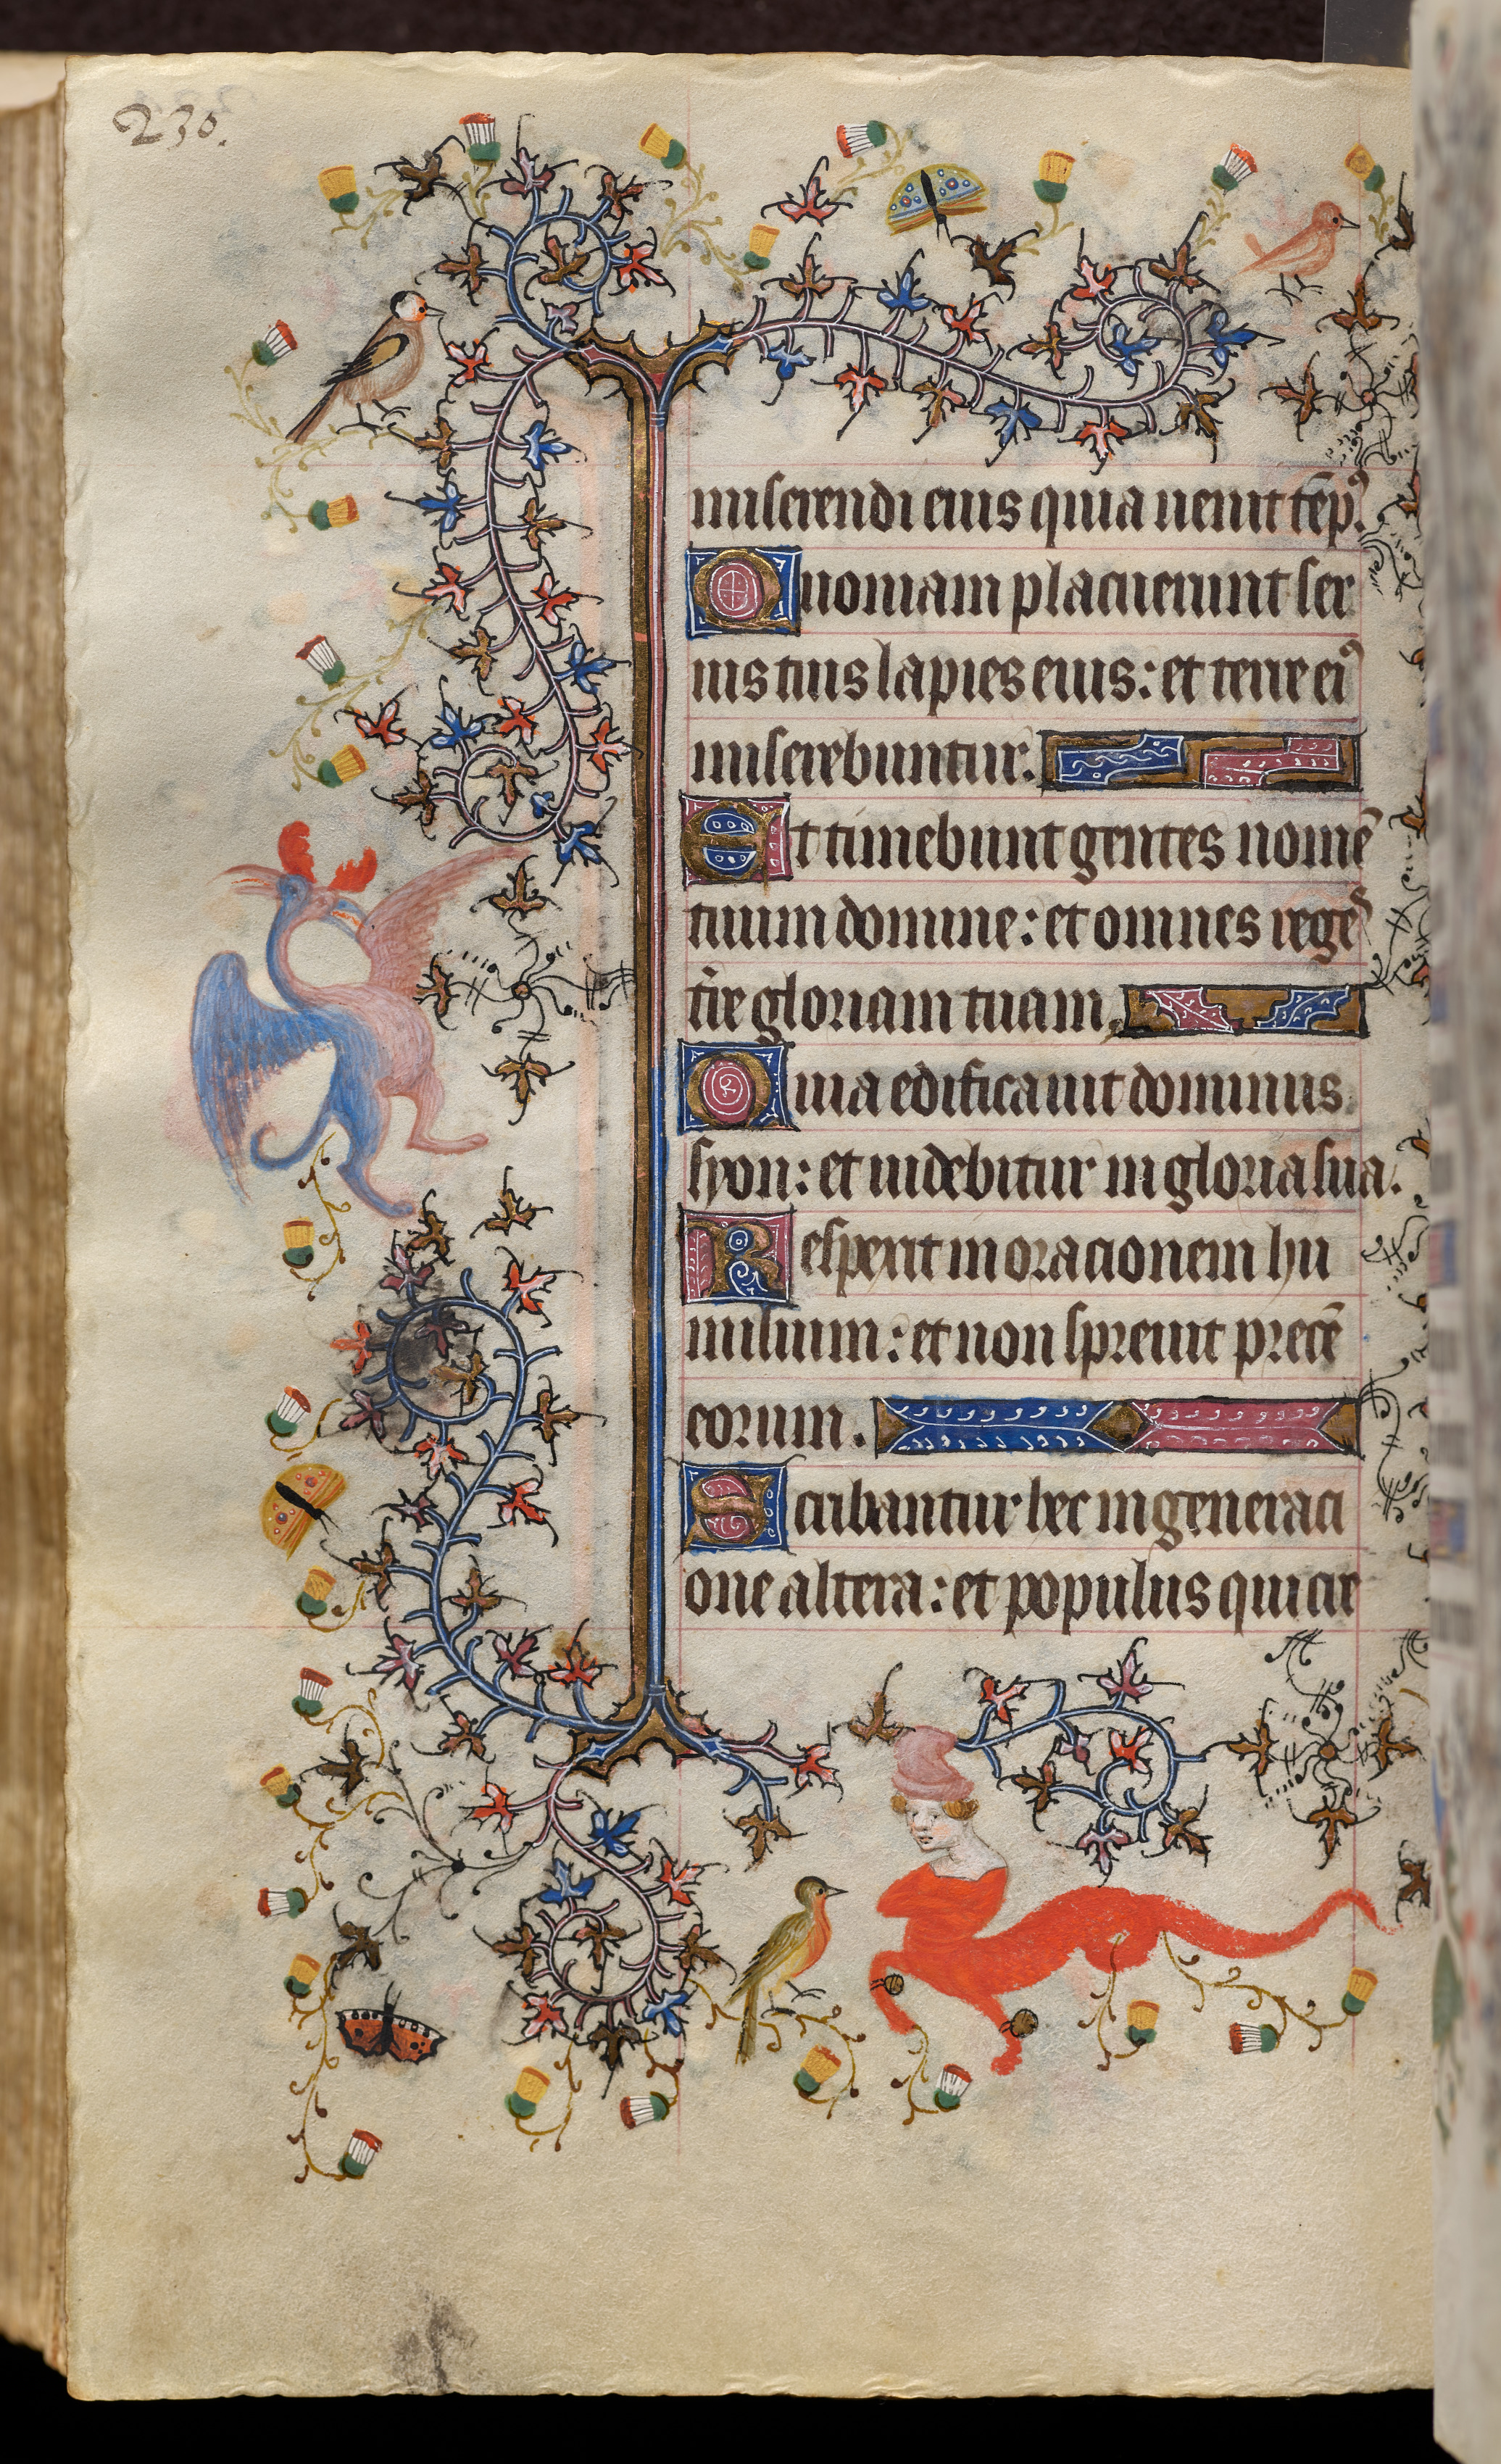 230.
miserendi eius quia uenit tēpꝰ.
Quoniam placuerunt ser
uis tuis lapies eius: et terre eiꝰ
miserebuntur.
Et timebunt gentes nomē
tuum domine: et omnes reges
tr̄e gloriam tuam.
Quia edificauit dominus
syon: et uidebitur in gloria sua.
Respexit in oracionem hu
milium: et non spreuit precē
eorum.
Scribantur hec in generaci
one altera: et populus qui cre